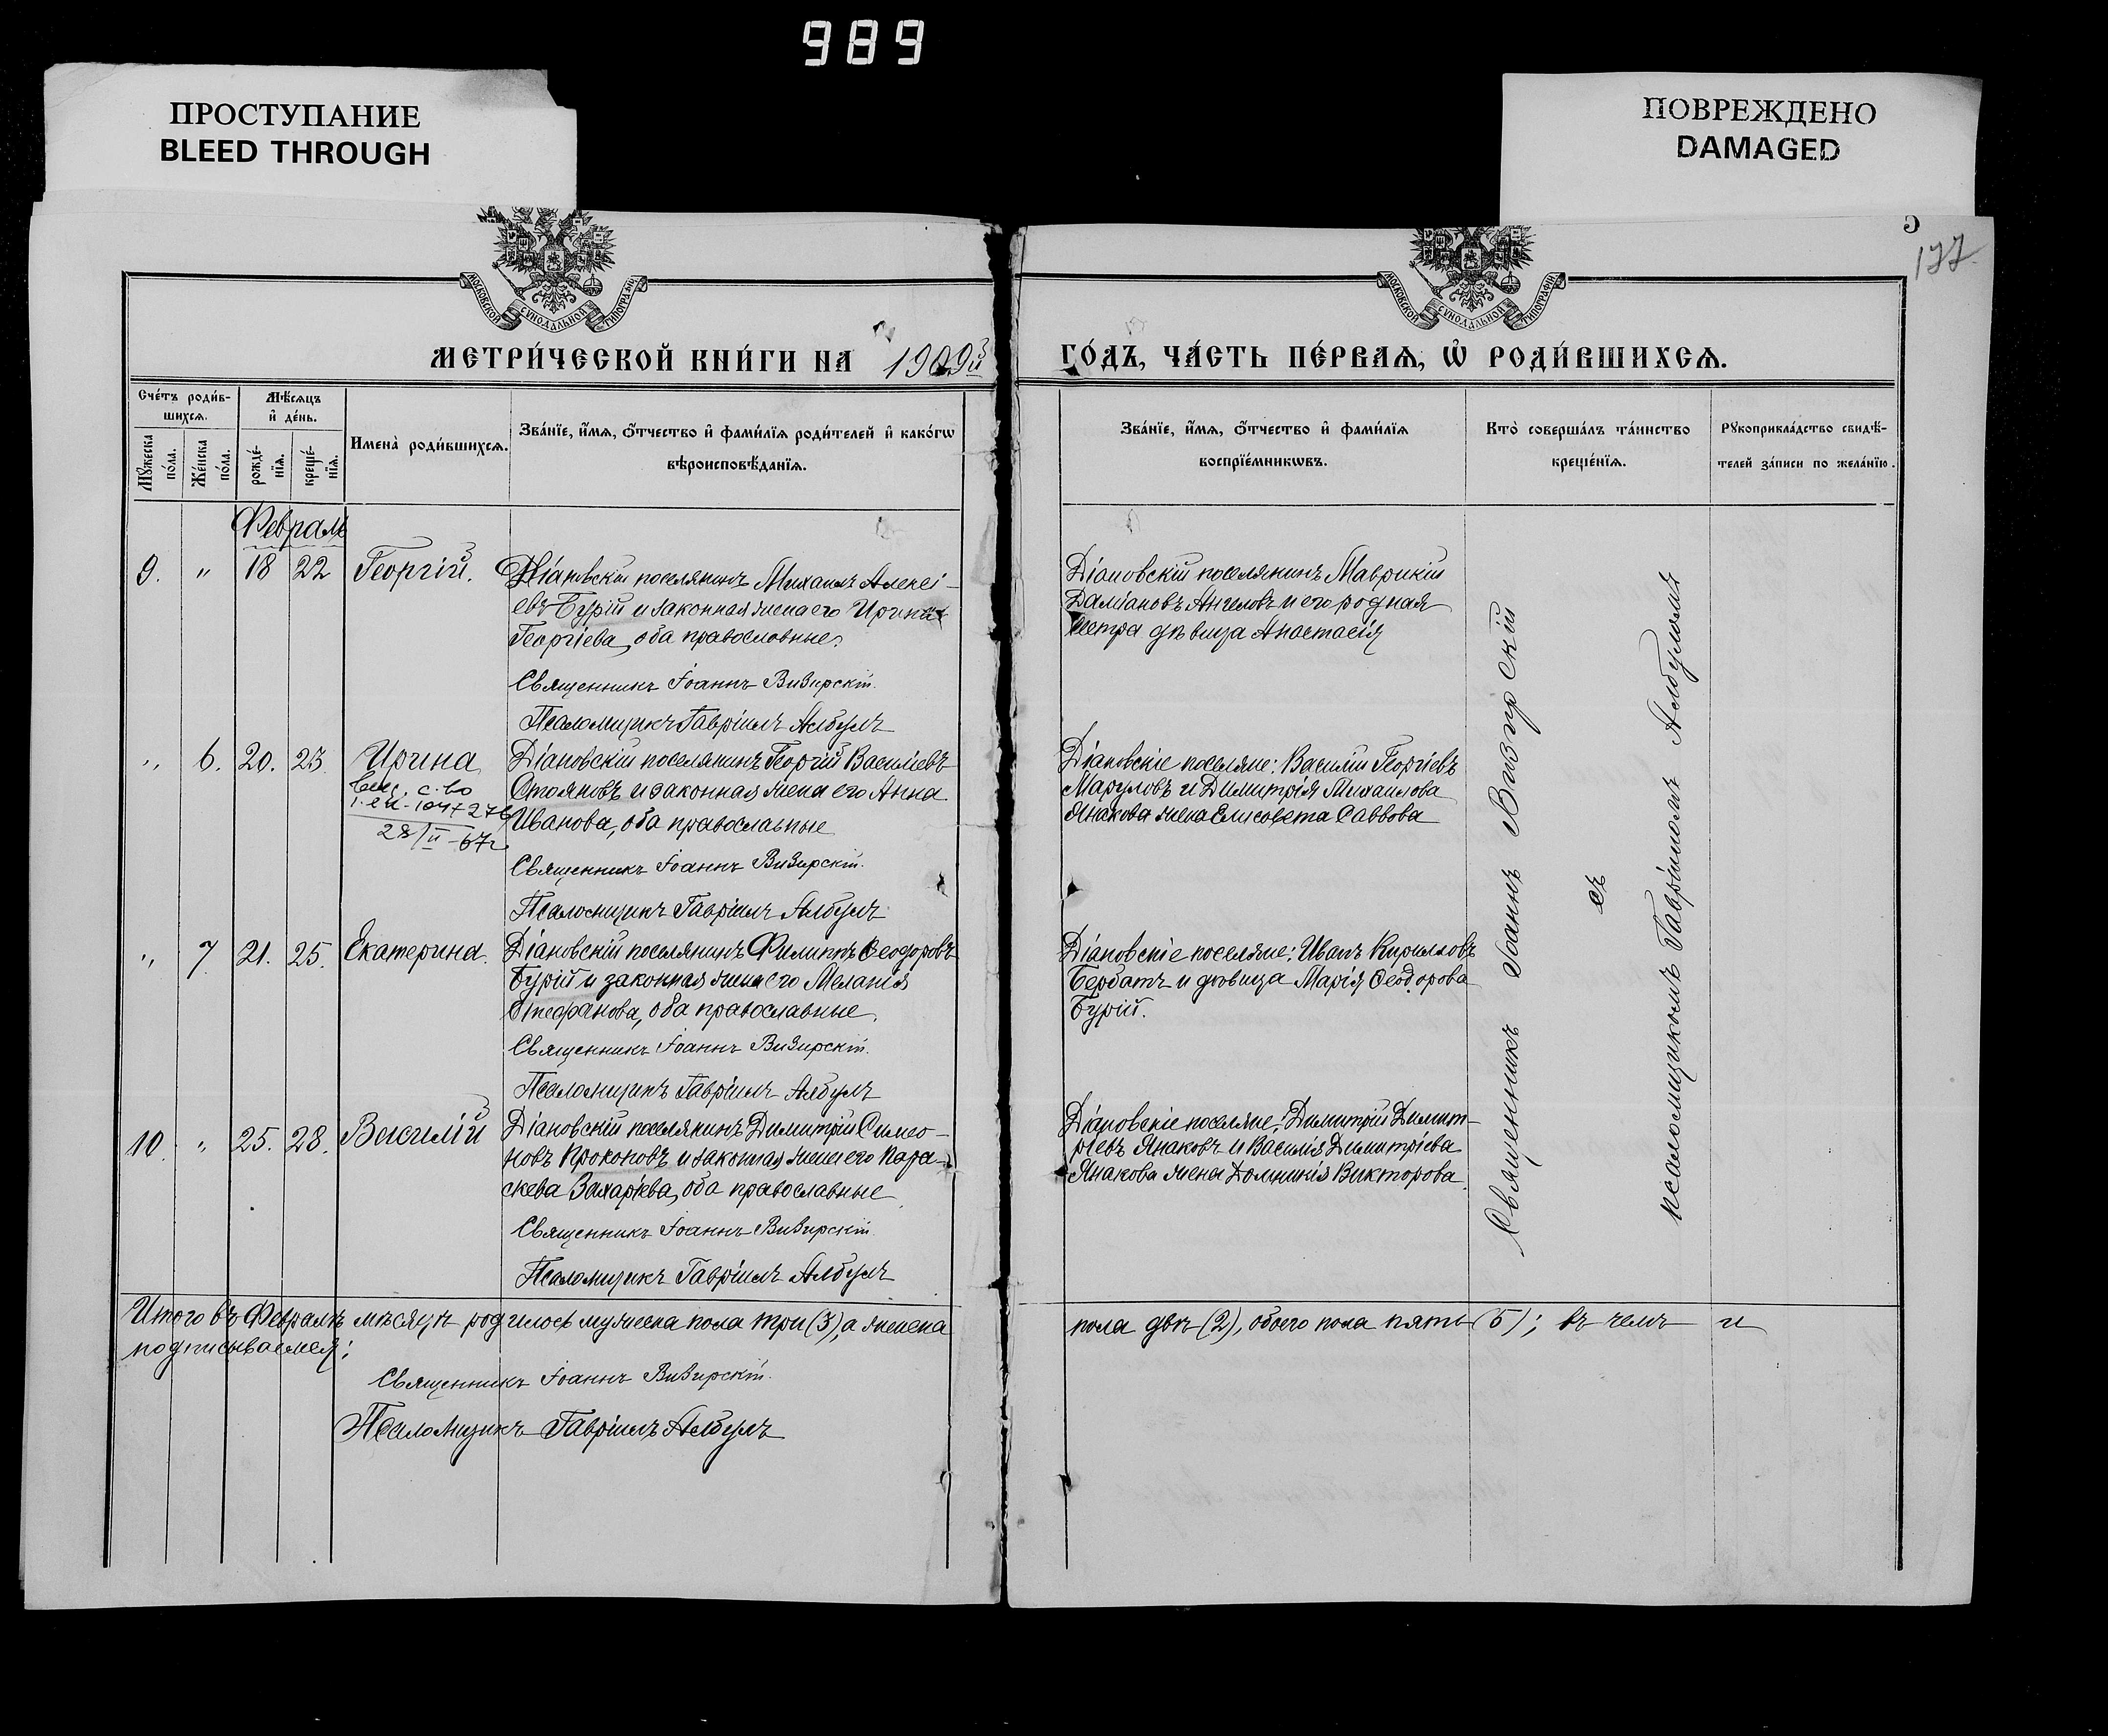 989
ПРОСТУПАНИЕ
BLEED THROUGH
ПОВРЕЖДЕНО
DAMAGED
5
177
МОСКОВСКОЙ СѴНОДАЛЬНОЙ ТИПОГРАФІИ
МОСКОВСКОЙ СѴНОДАЛЬНОЙ ТИПОГРАФІИ
МЕТРИ́ЧЕСКОЙ КНИ́ГИ НА 1909й
ГО́ДЪ, ЧА́СТЬ ПЕ́РВАѦ, Ѡ҆ РОДИ́ВШИХСѦ.
Сче́тъ роди́в-
шихсѧ.
Мѣ́сѧцъ
и҆ де́нь.
Мꙋ́жеска
по́ла.
Же́нска
по́ла.
рожде́-
нїѧ.
креще́-
нїѧ.
Имена̀ роди́вшихсѧ.
Зва́нїе, и҆́мѧ, ѻ҆́тчество и҆ фами́лїѧ роди́телей и҆ како́гѡ
вѣроисповѣ́данїѧ.
Зва́нїе, и҆́мѧ, ѻ҆́тчество и҆ фами́лїѧ
воспрїе́мникѡвъ.
Кто̀ соверша́лъ та́инство
креще́нїѧ.
Рꙋкоприкла́дство свидѣ́-
телей за́писи по жела́нїю.
Февраль
9. " 18 22 Георгій.
Діановскій поселянинъ Михаилъ Алексі-
евъ Бурій и законная жена его Ирина
Георгіева, оба православные.
Священникъ Іоаннъ Визирскій.
Псаломщикъ Гавріилъ Албулъ
Діановскій поселянинъ Маврикій
Даміановъ Ангеловъ и его родная
сестра дѣвица Анастасія
" 6. 20. 23. Ирина
28/II-67г
Діановскій поселянинъ Георгій Василіевъ
Стояновъ и законная жена его Анна
Иванова, оба православные
Священникъ Іоаннъ Визирскій.
Псаломщикъ Гавріилъ Албулъ
Діановскіе поселяне: Василій Георгіевъ
Маруловъ и Димитрія Михаилова
Янакова жена Елисовета Саввова
" 7. 21. 25. Екатерина.
Діановскій поселянинъ Филиппъ Ѳеодоровъ
Бурій и законная жена его Меланія
Стефанова, оба православные.
Священникъ Іоаннъ Визирскій.
Псаломщикъ Гавріилъ Албулъ
Діановскіе поселяне: Иванъ Кирилловъ
Бербатъ и дѣвица Марія Ѳеодорова
Бурій.
10. " 25. 28. Василій
Діановскій поселянинъ Димитрій Симео-
новъ Прокоповъ и законная жена его Пара-
скева Захаріева, оба православные
Священникъ Іоаннъ Визирскій.
Псаломщикъ Гавріилъ Албулъ
Діановскіе поселяне: Димитрій Димит-
ріевъ Янаковъ и Василія Димитріева
Янакова жена Домникія Викторова
Священникъ Іоаннъ Визирскій
съ
псаломщикомъ Гавріиломъ Албуломъ
Итого въ Февралѣ мѣсяцѣ родилось мужеска пола три (3), а женска
пола двѣ (2), обоего пола пять (5); въ чемъ и
подписываемся:
Священникъ Іоаннъ Визирскій.
Псаломщикъ Гавріилъ Албулъ